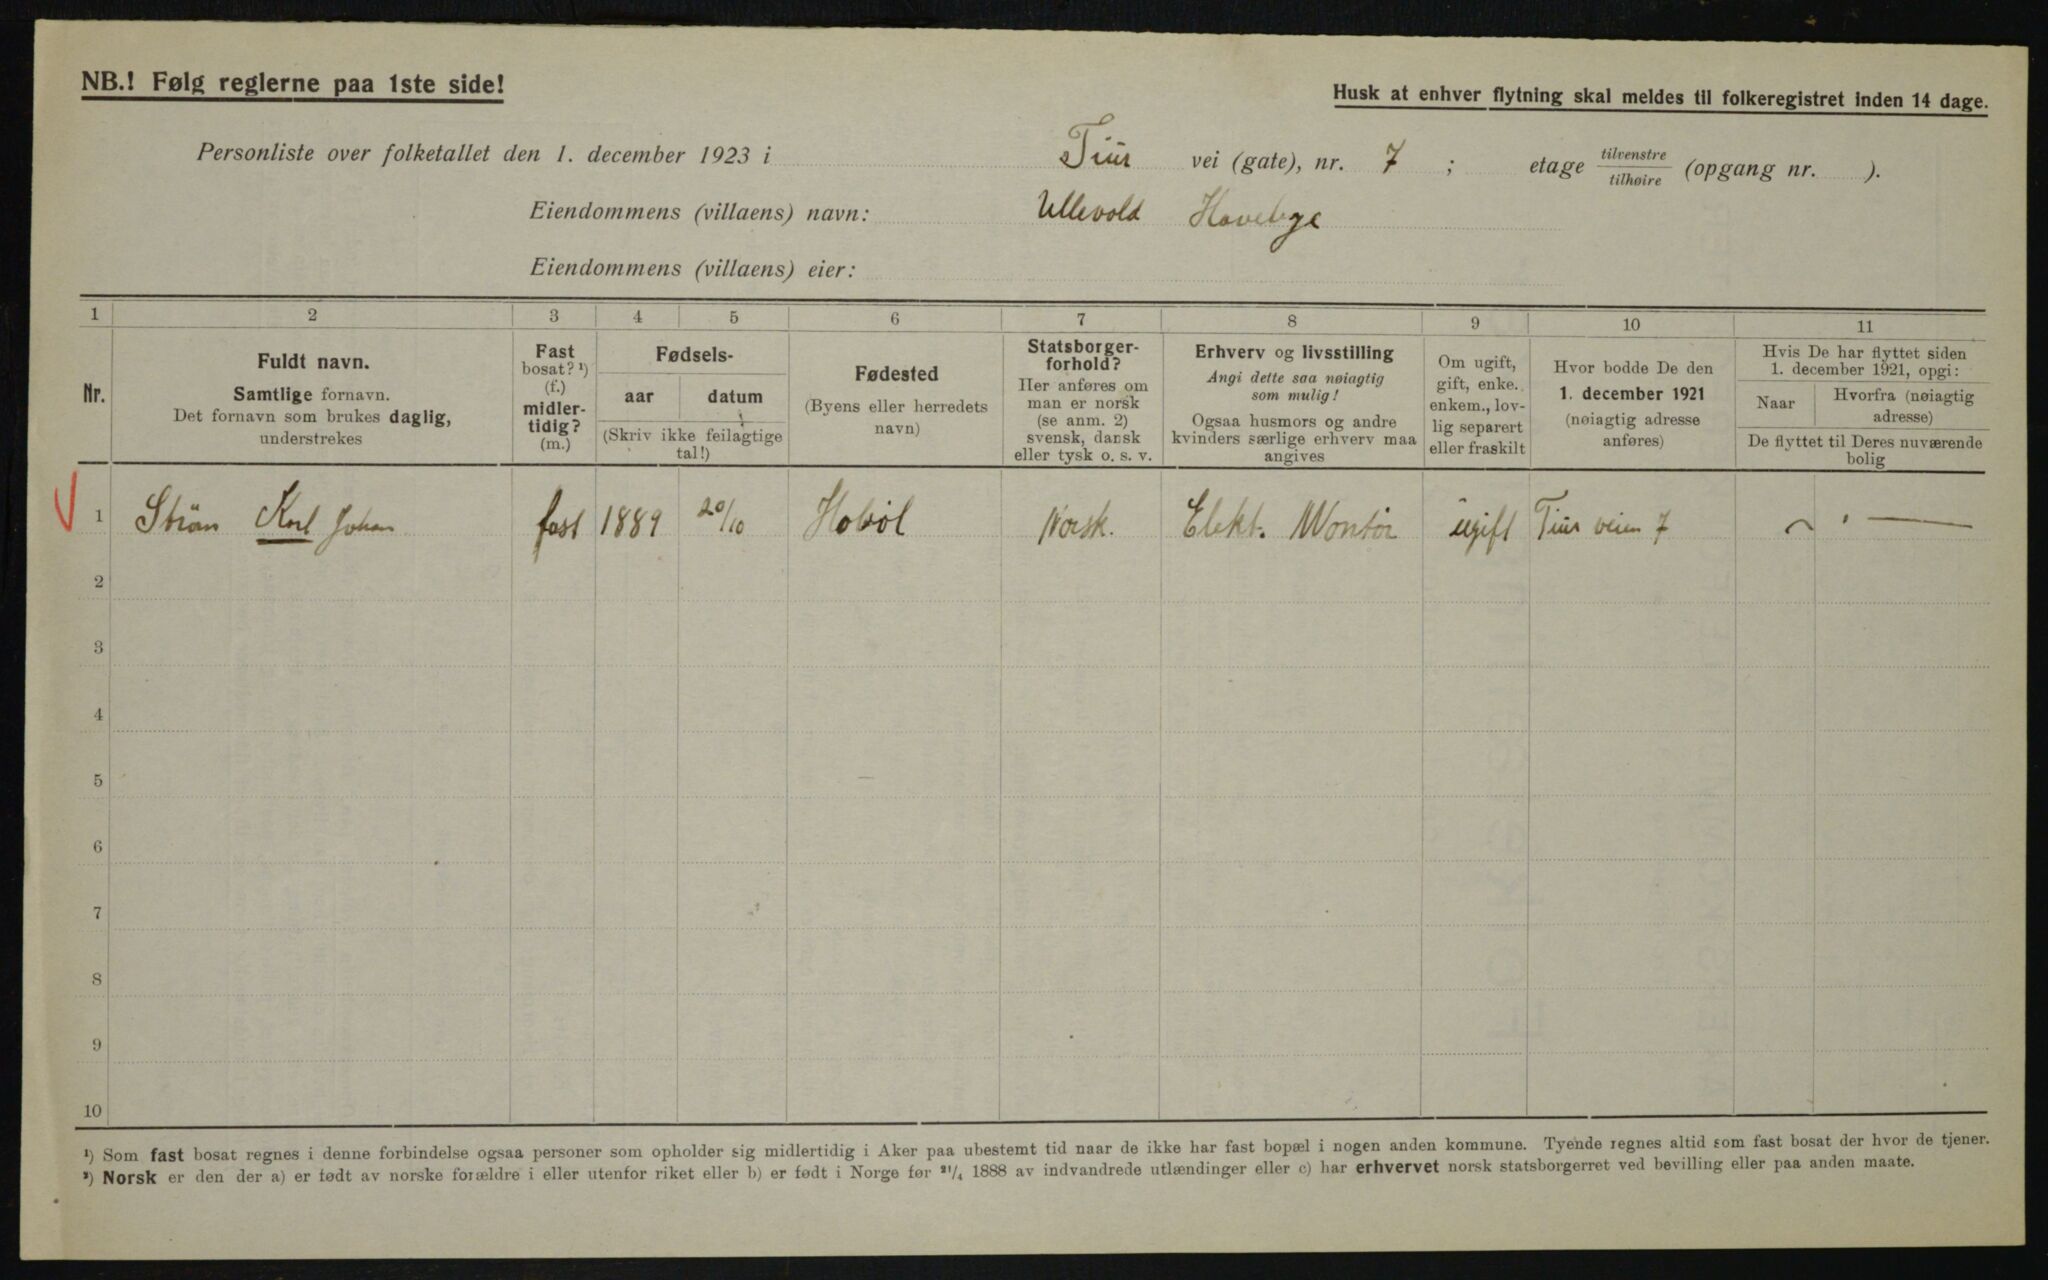 NB.! Følg reglerne paa 1ste side!
Husk at enhver flytning skal meldes til folkeregistret inden 14 dage.
Personliste over folketallet den 1. december 1923 i Tiur vei (gate), nr. 7 ; etage tilvenstre/tilhøire (opgang nr. ).
Eiendommens (villaens) navn: Ullevold Haveby
Eiendommens (villaens) eier:
1 2 3 4 5 6 7 8 9 10 11
Nr.
Fuldt navn.
Samtlige fornavn.
Det fornavn som brukes daglig,
understrekes
Fast
bosat? ¹)
(f.)
midler-
tidig?
(m.)
Fødsels-
aar datum
(Skriv ikke feilagtige
tal!)
Fødested
(Byens eller herredets
navn)
Statsborger-
forhold?
Her anføres om
man er norsk
(se anm. 2)
svensk, dansk
eller tysk o. s. v.
Erhverv og livsstilling
Angi dette saa nøiagtig
som mulig!
Ogsaa husmors og andre
kvinders særlige erhverv maa
angives
Om ugift,
gift, enke.
enkem., lov-
lig separert
eller fraskilt
Hvor bodde De den
1. december 1921
(nøiagtig adresse
anføres)
Hvis De har flyttet siden
1. december 1921, opgi:
Naar
Hvorfra (nøiagtig
adresse)
De flyttet til Deres nuværende
bolig
1 Ström Karl Johan fast 1889 20/10 Hobøl Norsk. Elekt. Montør ugift Tiur veien 7
2
3
4
5
6
7
8
9
10
¹) Som fast bosat regnes i denne forbindelse ogsaa personer som opholder sig midlertidig i Aker paa ubestemt tid naar de ikke har fast bopæl i nogen anden kommune. Tyende regnes altid som fast bosat der hvor de tjener.
²) Norsk er den der a) er født av norske forældre i eller utenfor riket eller b) er født i Norge før ²¹/₄ 1888 av indvandrede utlændinger eller c) har erhvervet norsk statsborgerret ved bevilling eller paa anden maate.